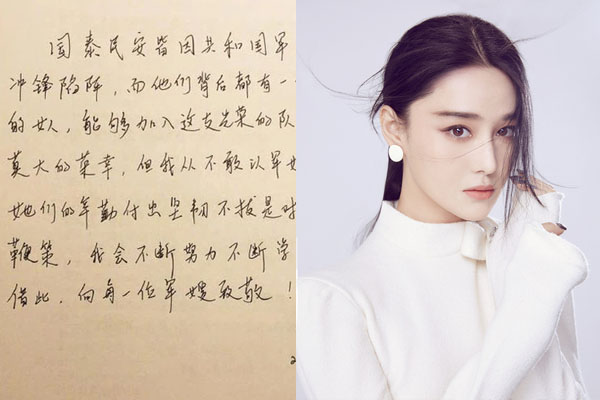 国泰民安皆因共和国军
冲锋陷阵，而他们背后都有一
的女人，能够加入这支光荣的队
莫大的荣幸，但我从不敢以军
她们的辛勤付出坚韧不拔是对
鞭策，我会不断努力不断学
借此，向每一位军嫂致敬！
2